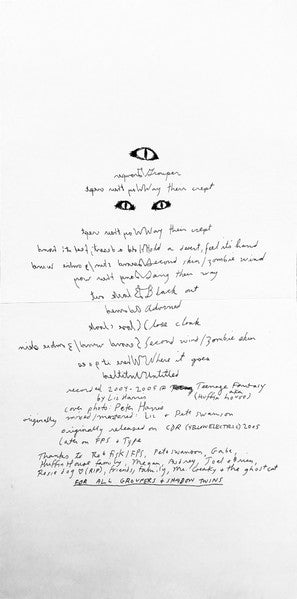 Grouper
Way their crept
Way their crept
Hold a desert, feel its hand
Second skin/zombie wind
Sang their way
Black out
Adorned
Close cloak
Second wind/zombie skin
Where it goes
Untitled
recorded 2004-2005 @ Teenage Fantasy
by Liz Harris (Huffin house)
cover photo Peter Harris
originally mixed/mastered: Liz + Pete Swanson
originally released on CDR (YELLOWELECTRIC) 2005
later on FPS + Type
Thanks to Rob Fisk/FPS, Pete Swanson, Gabe,
Huffin House family, Megan, Audrey, Joel
Rosie dog (RIP), friends, family, + the ghost cat
FOR ALL GROUPERS + SHADOW TWINS